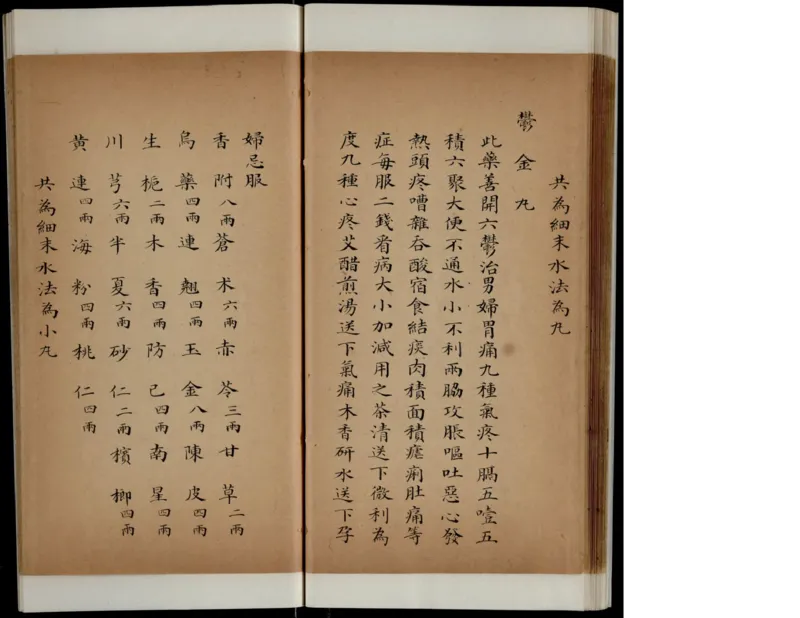 共為細末水法為丸
鬱金丸
此藥善開六鬱治男婦胃痛九種氣疼十膈五噎五
積六聚大便不通水小不利兩脇攻脹嘔吐惡心發
熱頭疼嘈雜吞酸宿食結痰肉積面積瘧痢肚痛等
症每服二錢看病大小加減用之茶清送下微利為
度九種心疼艾醋煎湯送下氣痛木香研水送下孕
婦忌服
香附八兩蒼术六兩赤苓三兩甘草二兩
烏藥四兩連翹四兩玉金八兩陳皮四兩
生梔二兩木香四兩防己四兩南星四兩
川芎六兩半夏六兩砂仁二兩檳榔四兩
黃連四兩海粉四兩桃仁四兩
共為細末水法為小丸